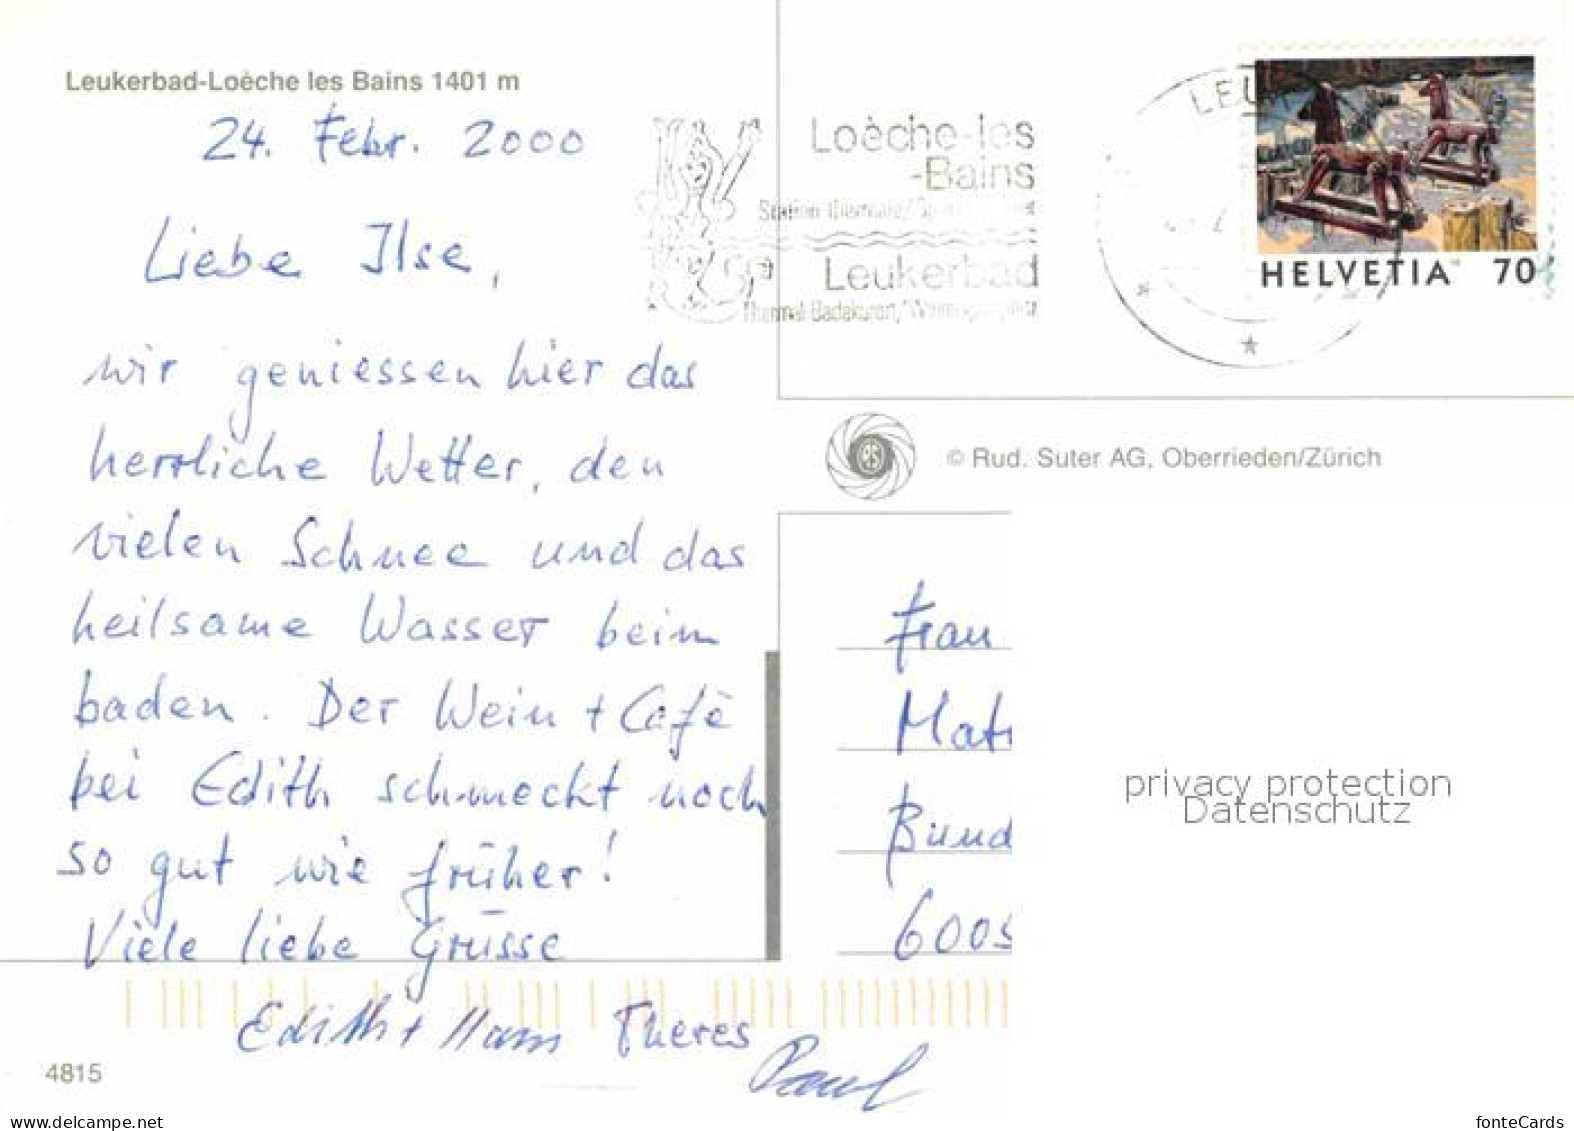 Leukerbad-Loèche les Bains 1401 m
24. Febr. 2000
Liebe Ilse,
wir geniessen hier das
herrliche Wetter, den
vielen Schnee und das
heilsame Wasser beim
baden. Der Wein + Café
bei Edith schmeckt noch
so gut wie früher!
Viele liebe Grüsse
Edith + Hans Theres
Paul
4815
Loèche-les
-Bains
Station thermale/
Leukerbad
Thermal-Badekurort/
LEU
HELVETIA 70
© Rud. Suter AG, Oberrieden/Zürich
Frau
Mat
Bund
6005
privacy protection
Datenschutz
www.delcampe.net
fonteCards